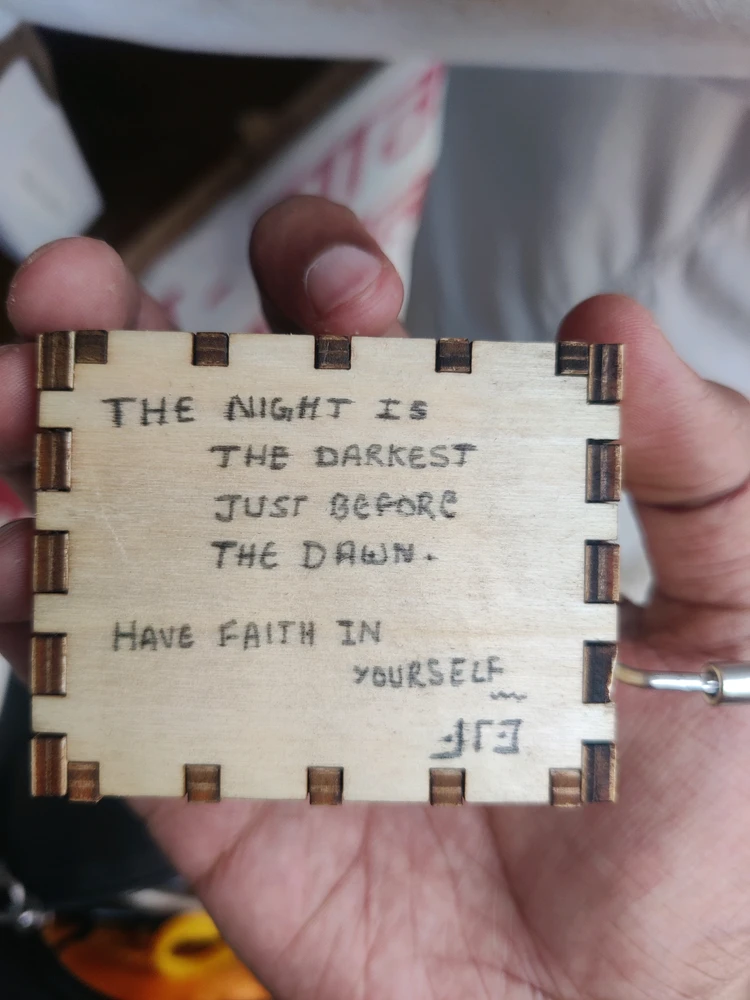 THE NIGHT IS
THE DARKEST
JUST BEFORE
THE DAWN.
HAVE FAITH IN
YOURSELF